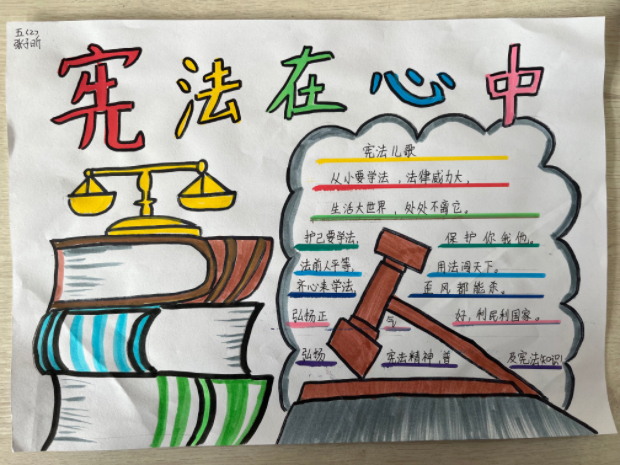 五(2)
张子昕
宪法在心中
宪法儿歌
从小要学法,法律威力大,
生活大世界,处处不离它。
护己要学法,保护你我他。
法前人平等,用法闯天下。
齐心来学法,歪风都能杀。
弘扬正气好,利民利国家。
弘扬宪法精神,普及宪法知识!